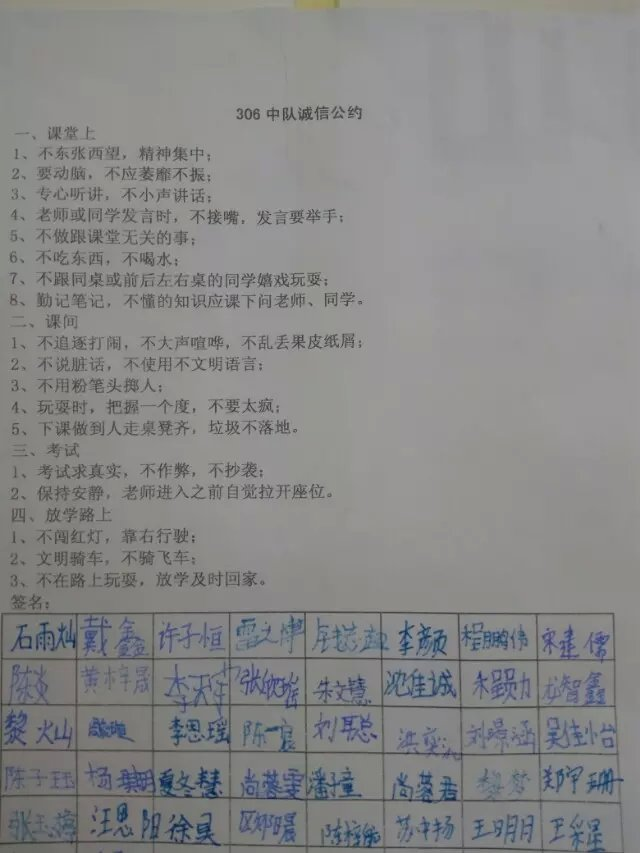 306 中队诚信公约
一、课堂上
1、不东张西望，精神集中；
2、要动脑，不应萎靡不振；
3、专心听讲，不小声讲话；
4、老师或同学发言时，不接嘴，发言要举手；
5、不做跟课堂无关的事；
6、不吃东西，不喝水；
7、不跟同桌或前后左右桌的同学嬉戏玩耍；
8、勤记笔记，不懂的知识应课下问老师、同学。
二、课间
1、不追逐打闹，不大声喧哗，不乱丢果皮纸屑；
2、不说脏话，不使用不文明语言；
3、不用粉笔头掷人；
4、玩耍时，把握一个度，不要太疯；
5、下课做到人走桌凳齐，垃圾不落地。
三、考试
1、考试求真实，不作弊，不抄袭；
2、保持安静，老师进入之前自觉拉开座位。
四、放学路上
1、不闯红灯，靠右行驶；
2、文明骑车，不骑飞车；
3、不在路上玩耍，放学及时回家。
签名：
石雨灿 戴鑫 许子恒 李颜 程鹏伟 宋建儒
陈炎 黄梓晟 朱文慧 沈佳诚 龙智鑫
黎火山 李恩瑶 刘聪 刘璟涵
陈子珏 夏冬慧 尚蓉雯 潘子童 尚蓉君 黎梦 郑宇珊
汪思阳 徐昊 欧阳晨 苏中扬 王明月 王采星